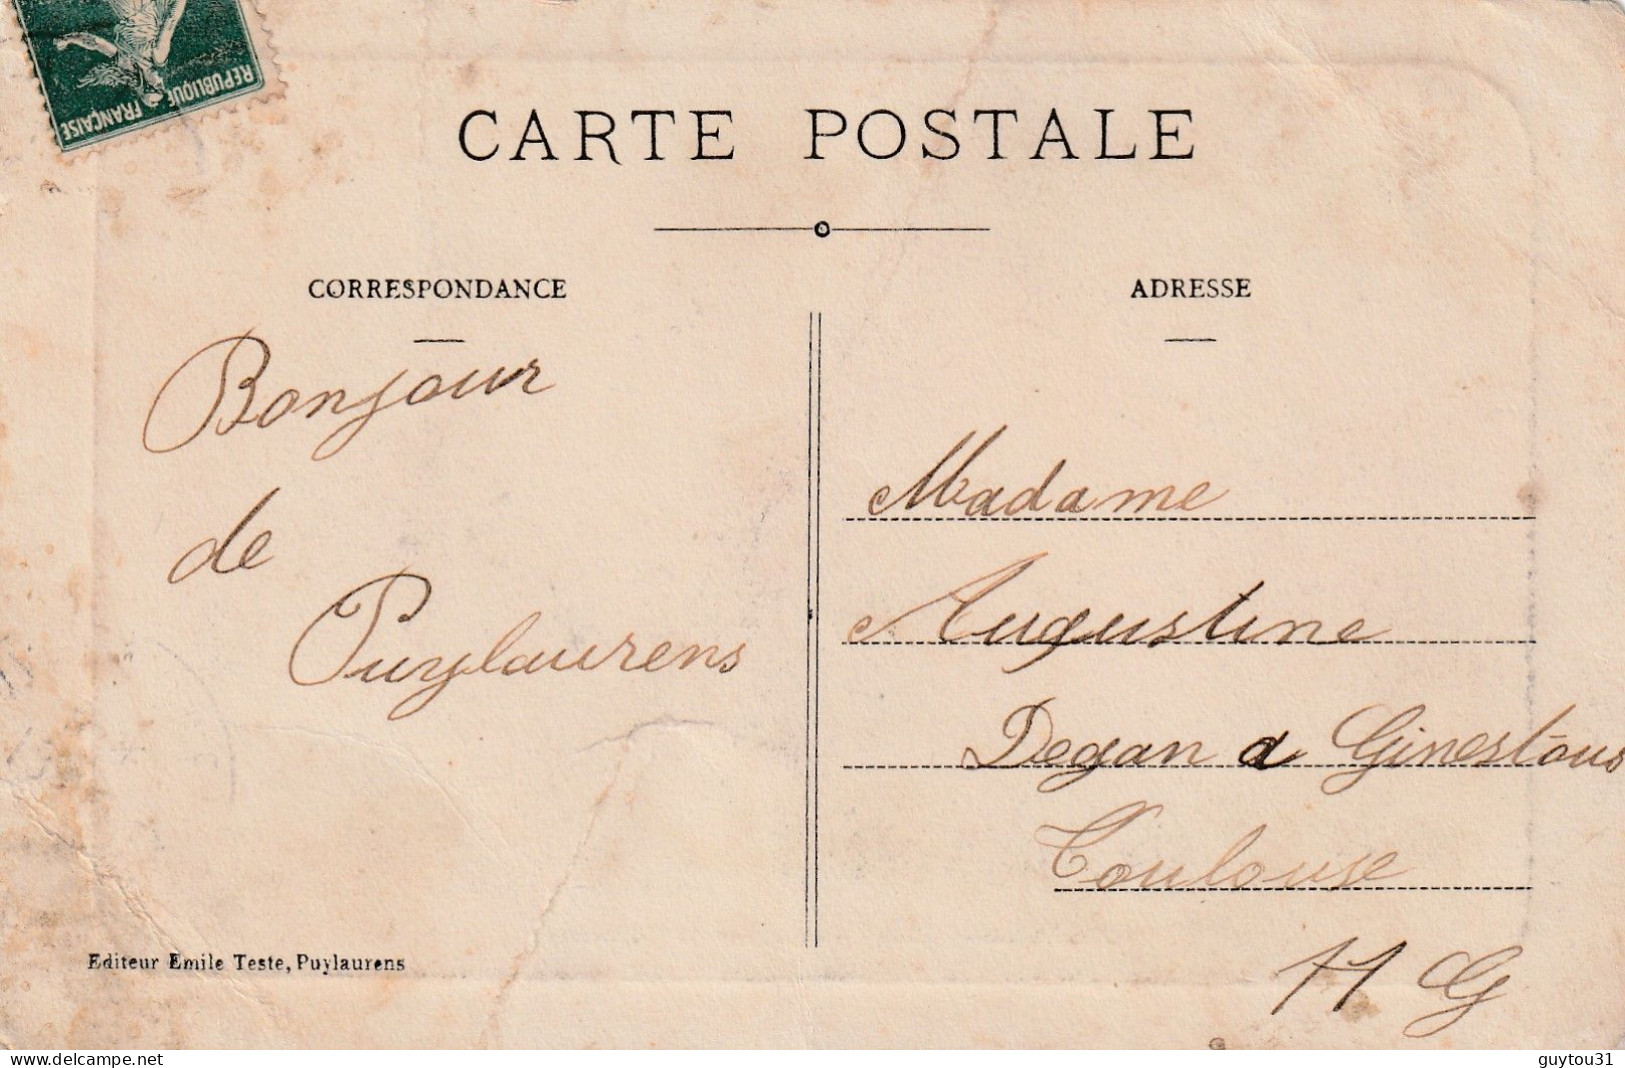 REPUBLIQUE FRANÇAISE
CARTE POSTALE
CORRESPONDANCE
Bonjour
de
Puylaurens
Editeur Emile Teste, Puylaurens
ADRESSE
Madame
Augustine
Degan a Ginestous
Toulouse
H G
guytou31